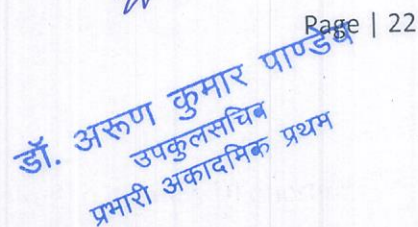 Page | 22
डॉ. अरूण कुमार पाण्डेय
उपकुलसचिव
प्रभारी अकादमिक प्रथम